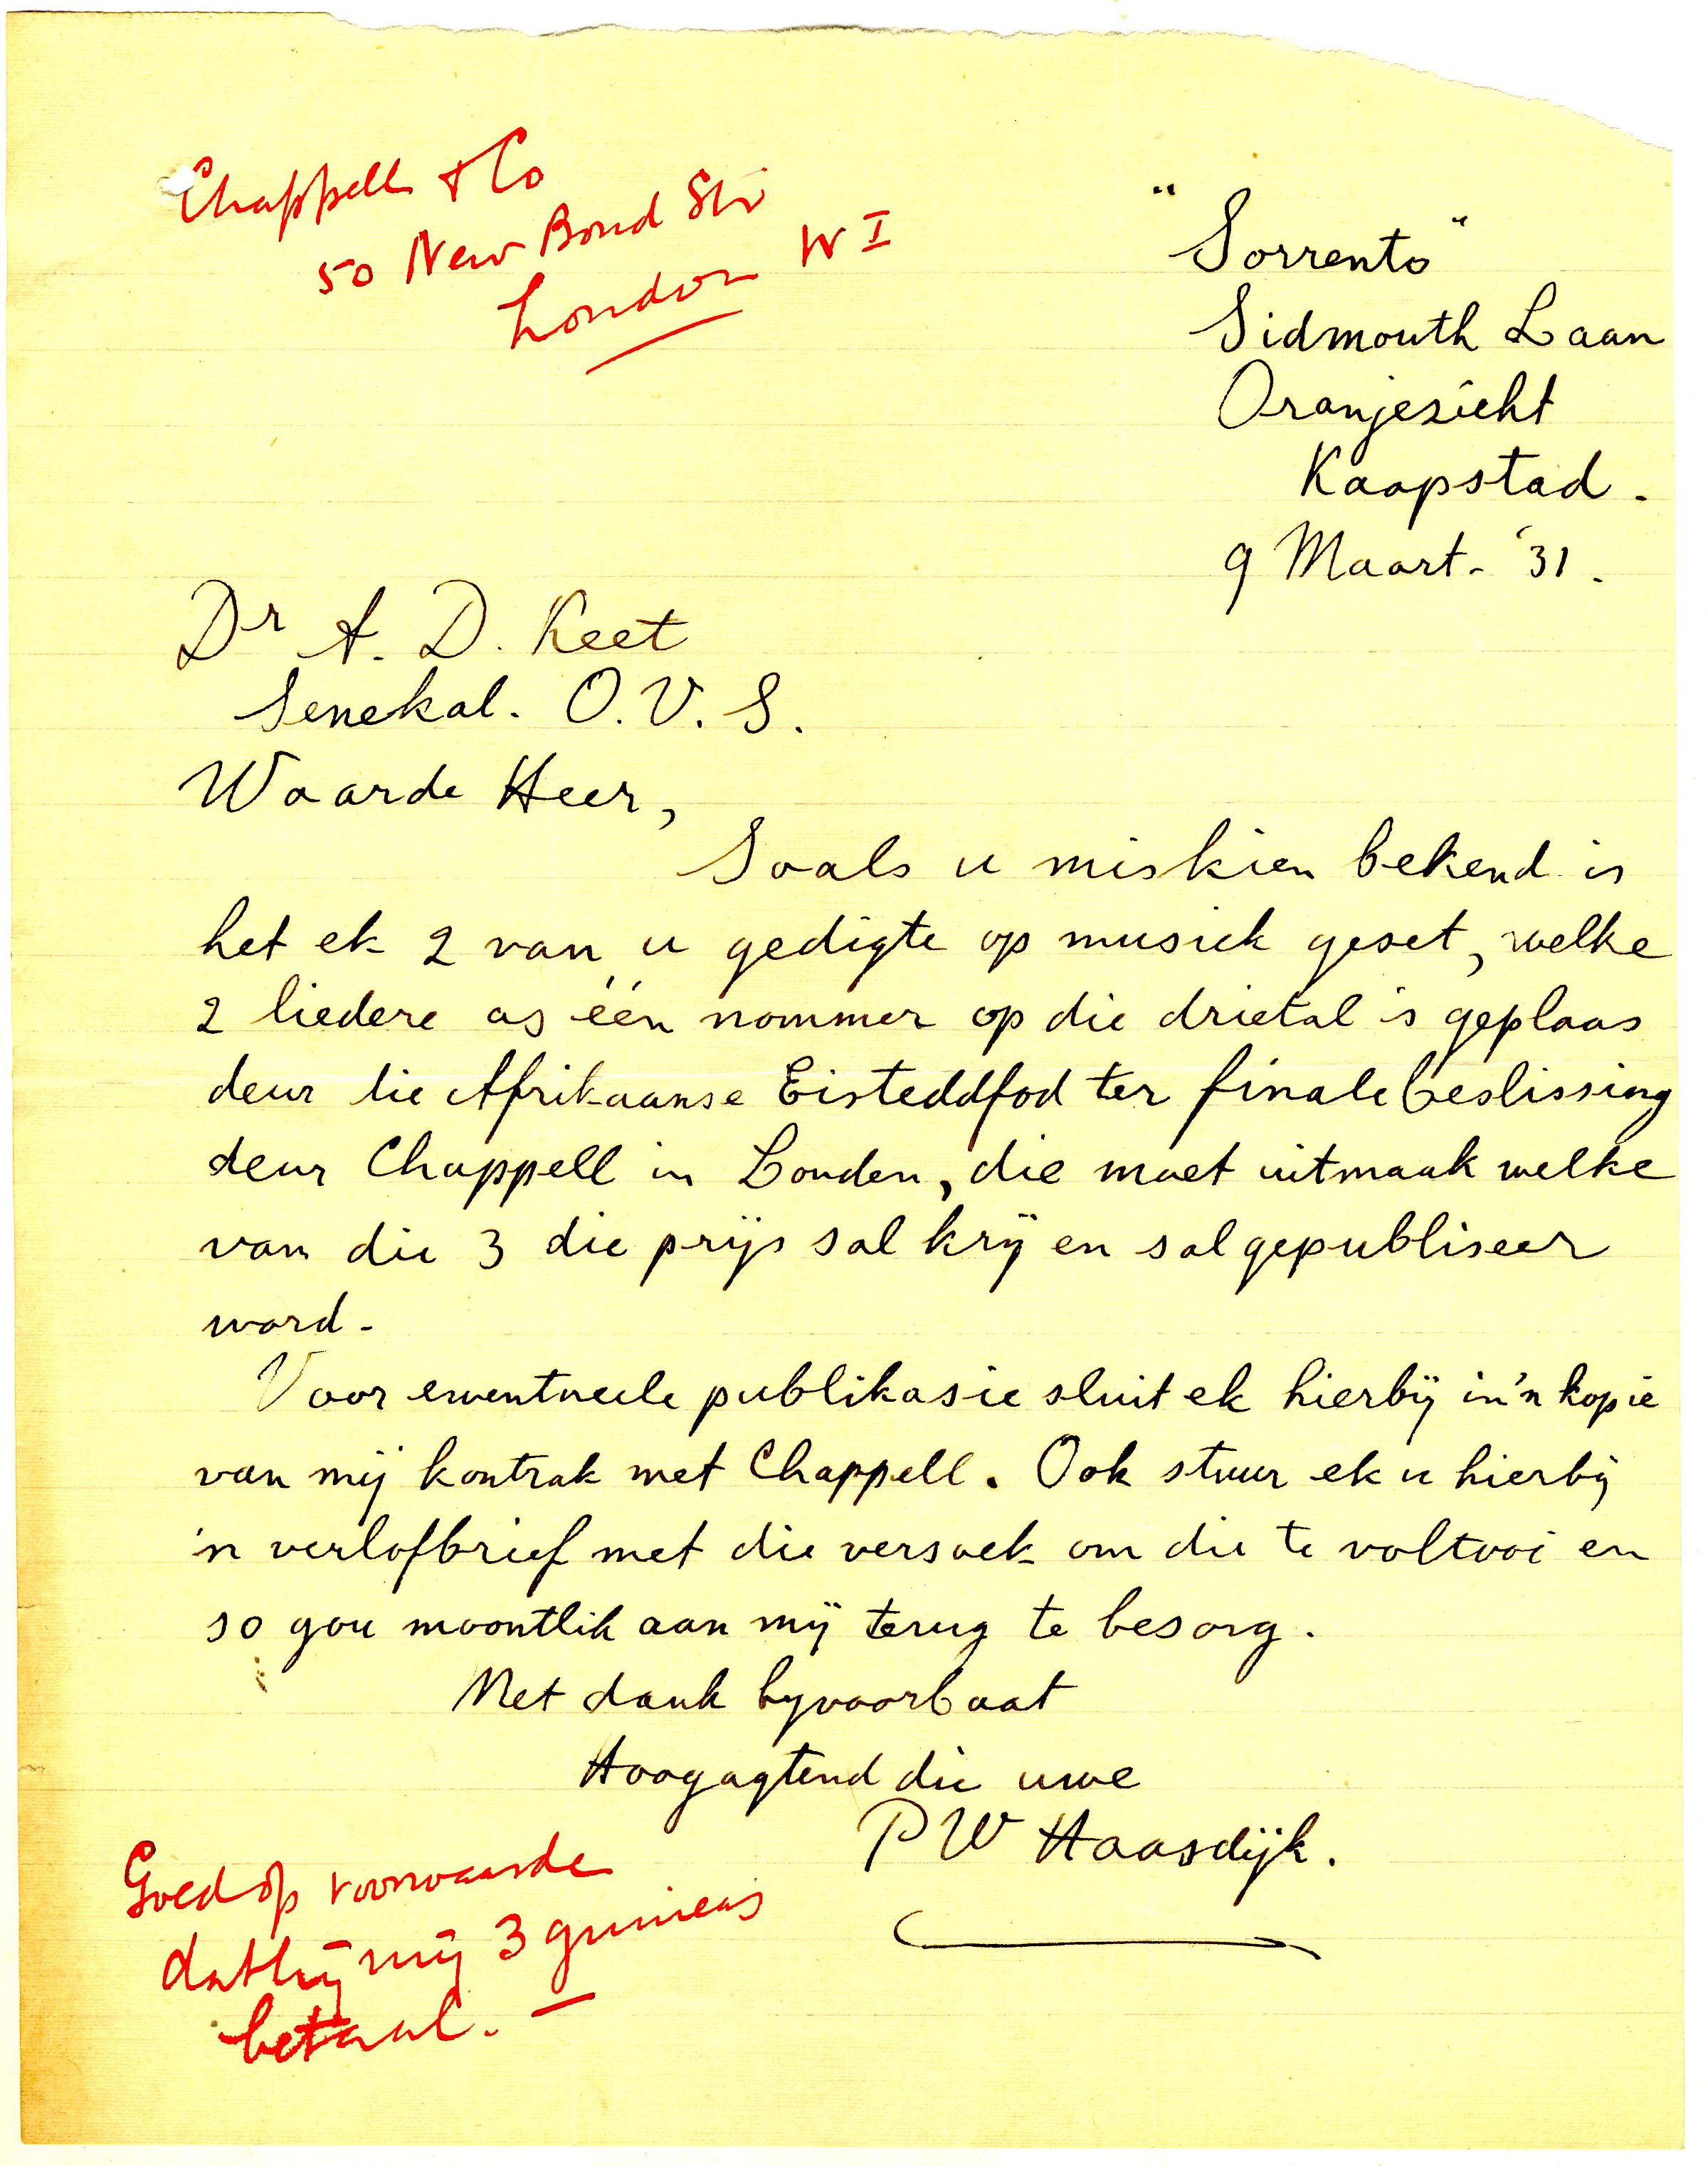 Chappell & Co
50 New Bond Str
London W I
"Sorrento"
Sidmouth Laan
Oranjezicht
Kaapstad.
9 Maart - '31.
Dr A. D. Keet
Senekal. O.V.S.
Waarde Heer,
Soals u miskien bekend is
het ek 2 van u gedigte op musiek geset, welke
2 liedere as één nommer op die drietal is geplaas
deur die Afrikaanse Eisteddfod ter finale beslissing
deur Chappell in Londen, die moet uitmaak welke
van die 3 die prijs sal krij en sal gepubliseer
word -
Voor eventueele publikasie sluit ek hierbij in 'n kopie
van mij kontrak met Chappell. Ook stuur ek u hierbij
'n verlofbrief met die versoek om die te voltooi en
so gou moontlik aan mij terug te besorg.
Met dank byvoorbaat
Hoogagtend die uwe
P W Haasdijk.
Goed op voorwaarde
dat hij mij 3 guineas
betaal. -